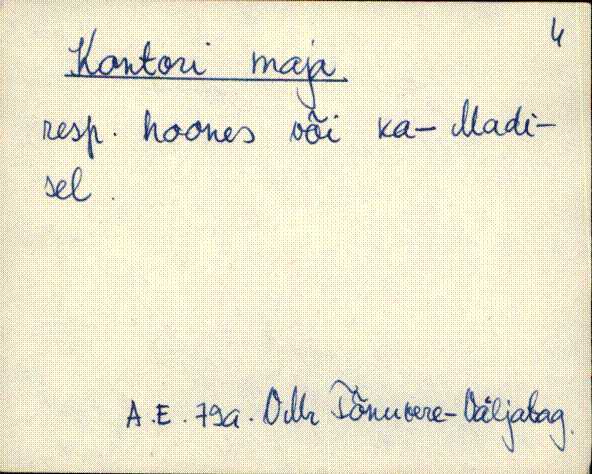 4
Kontori maja
resp. hoones või ka- Madi-
sel.
A.E. 79a. Tõnuvere-Väljabag.